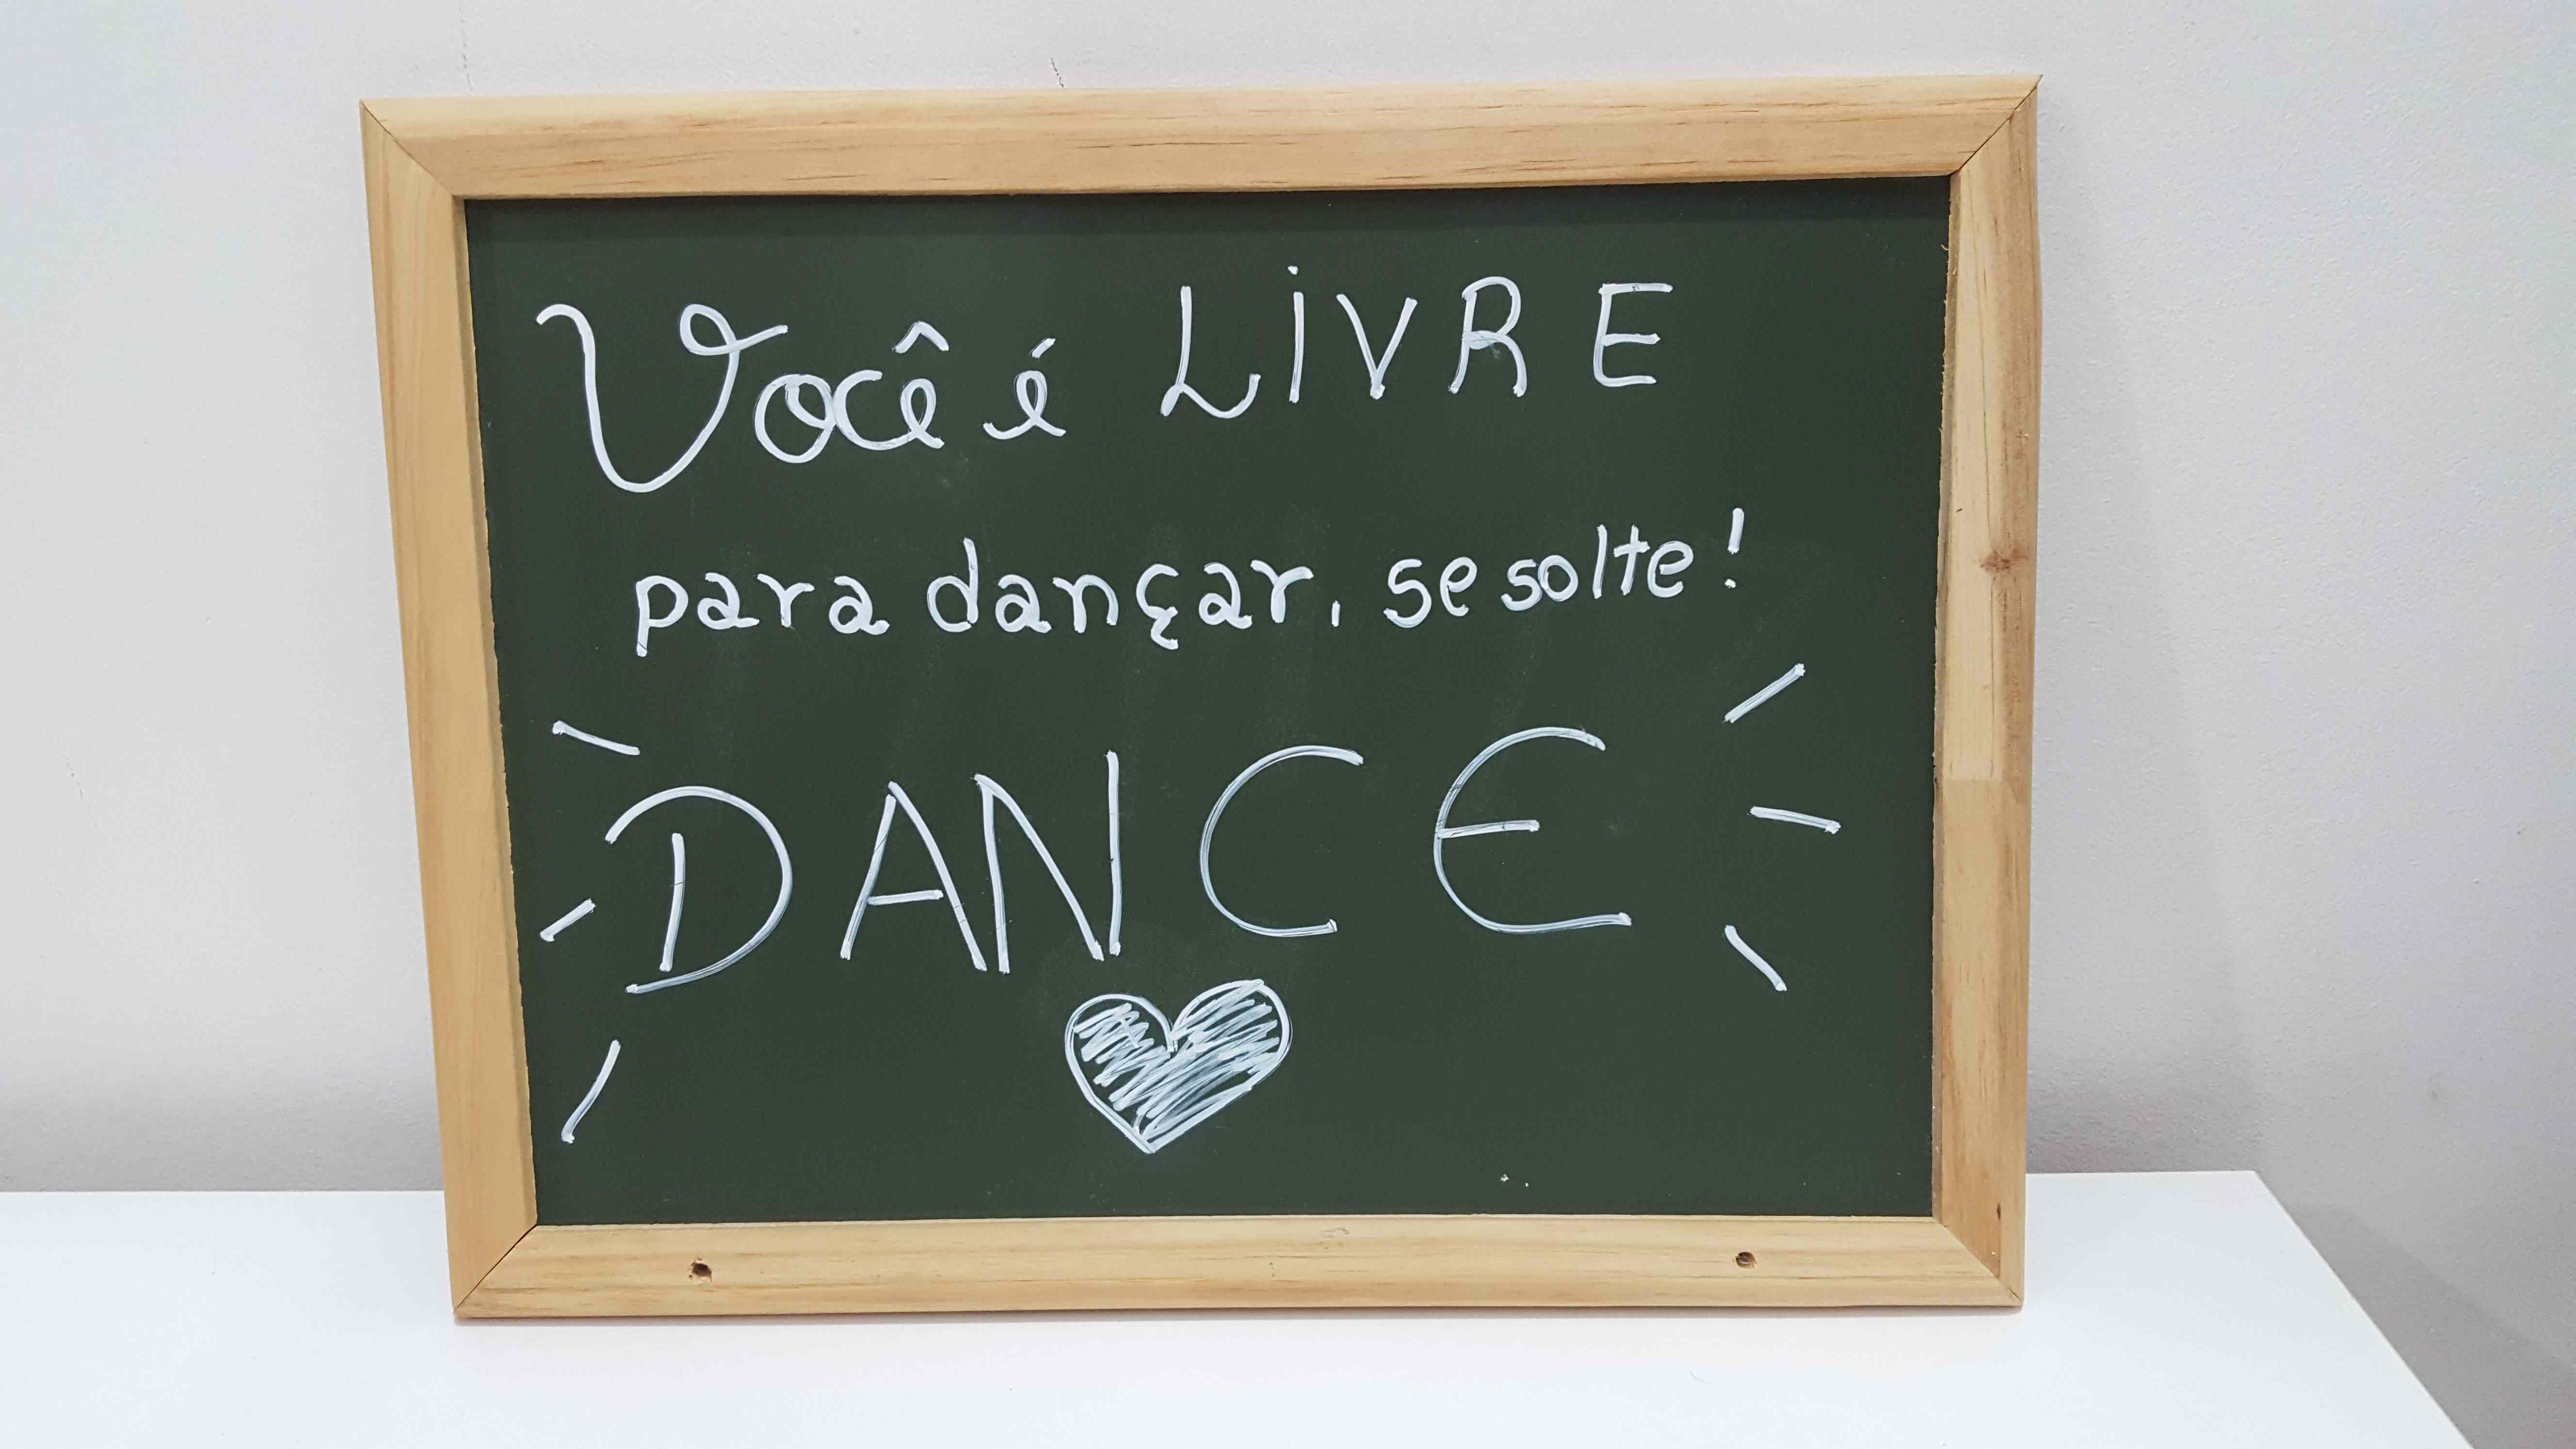 Você é LIVRE
para dançar, se solte!
DANCE